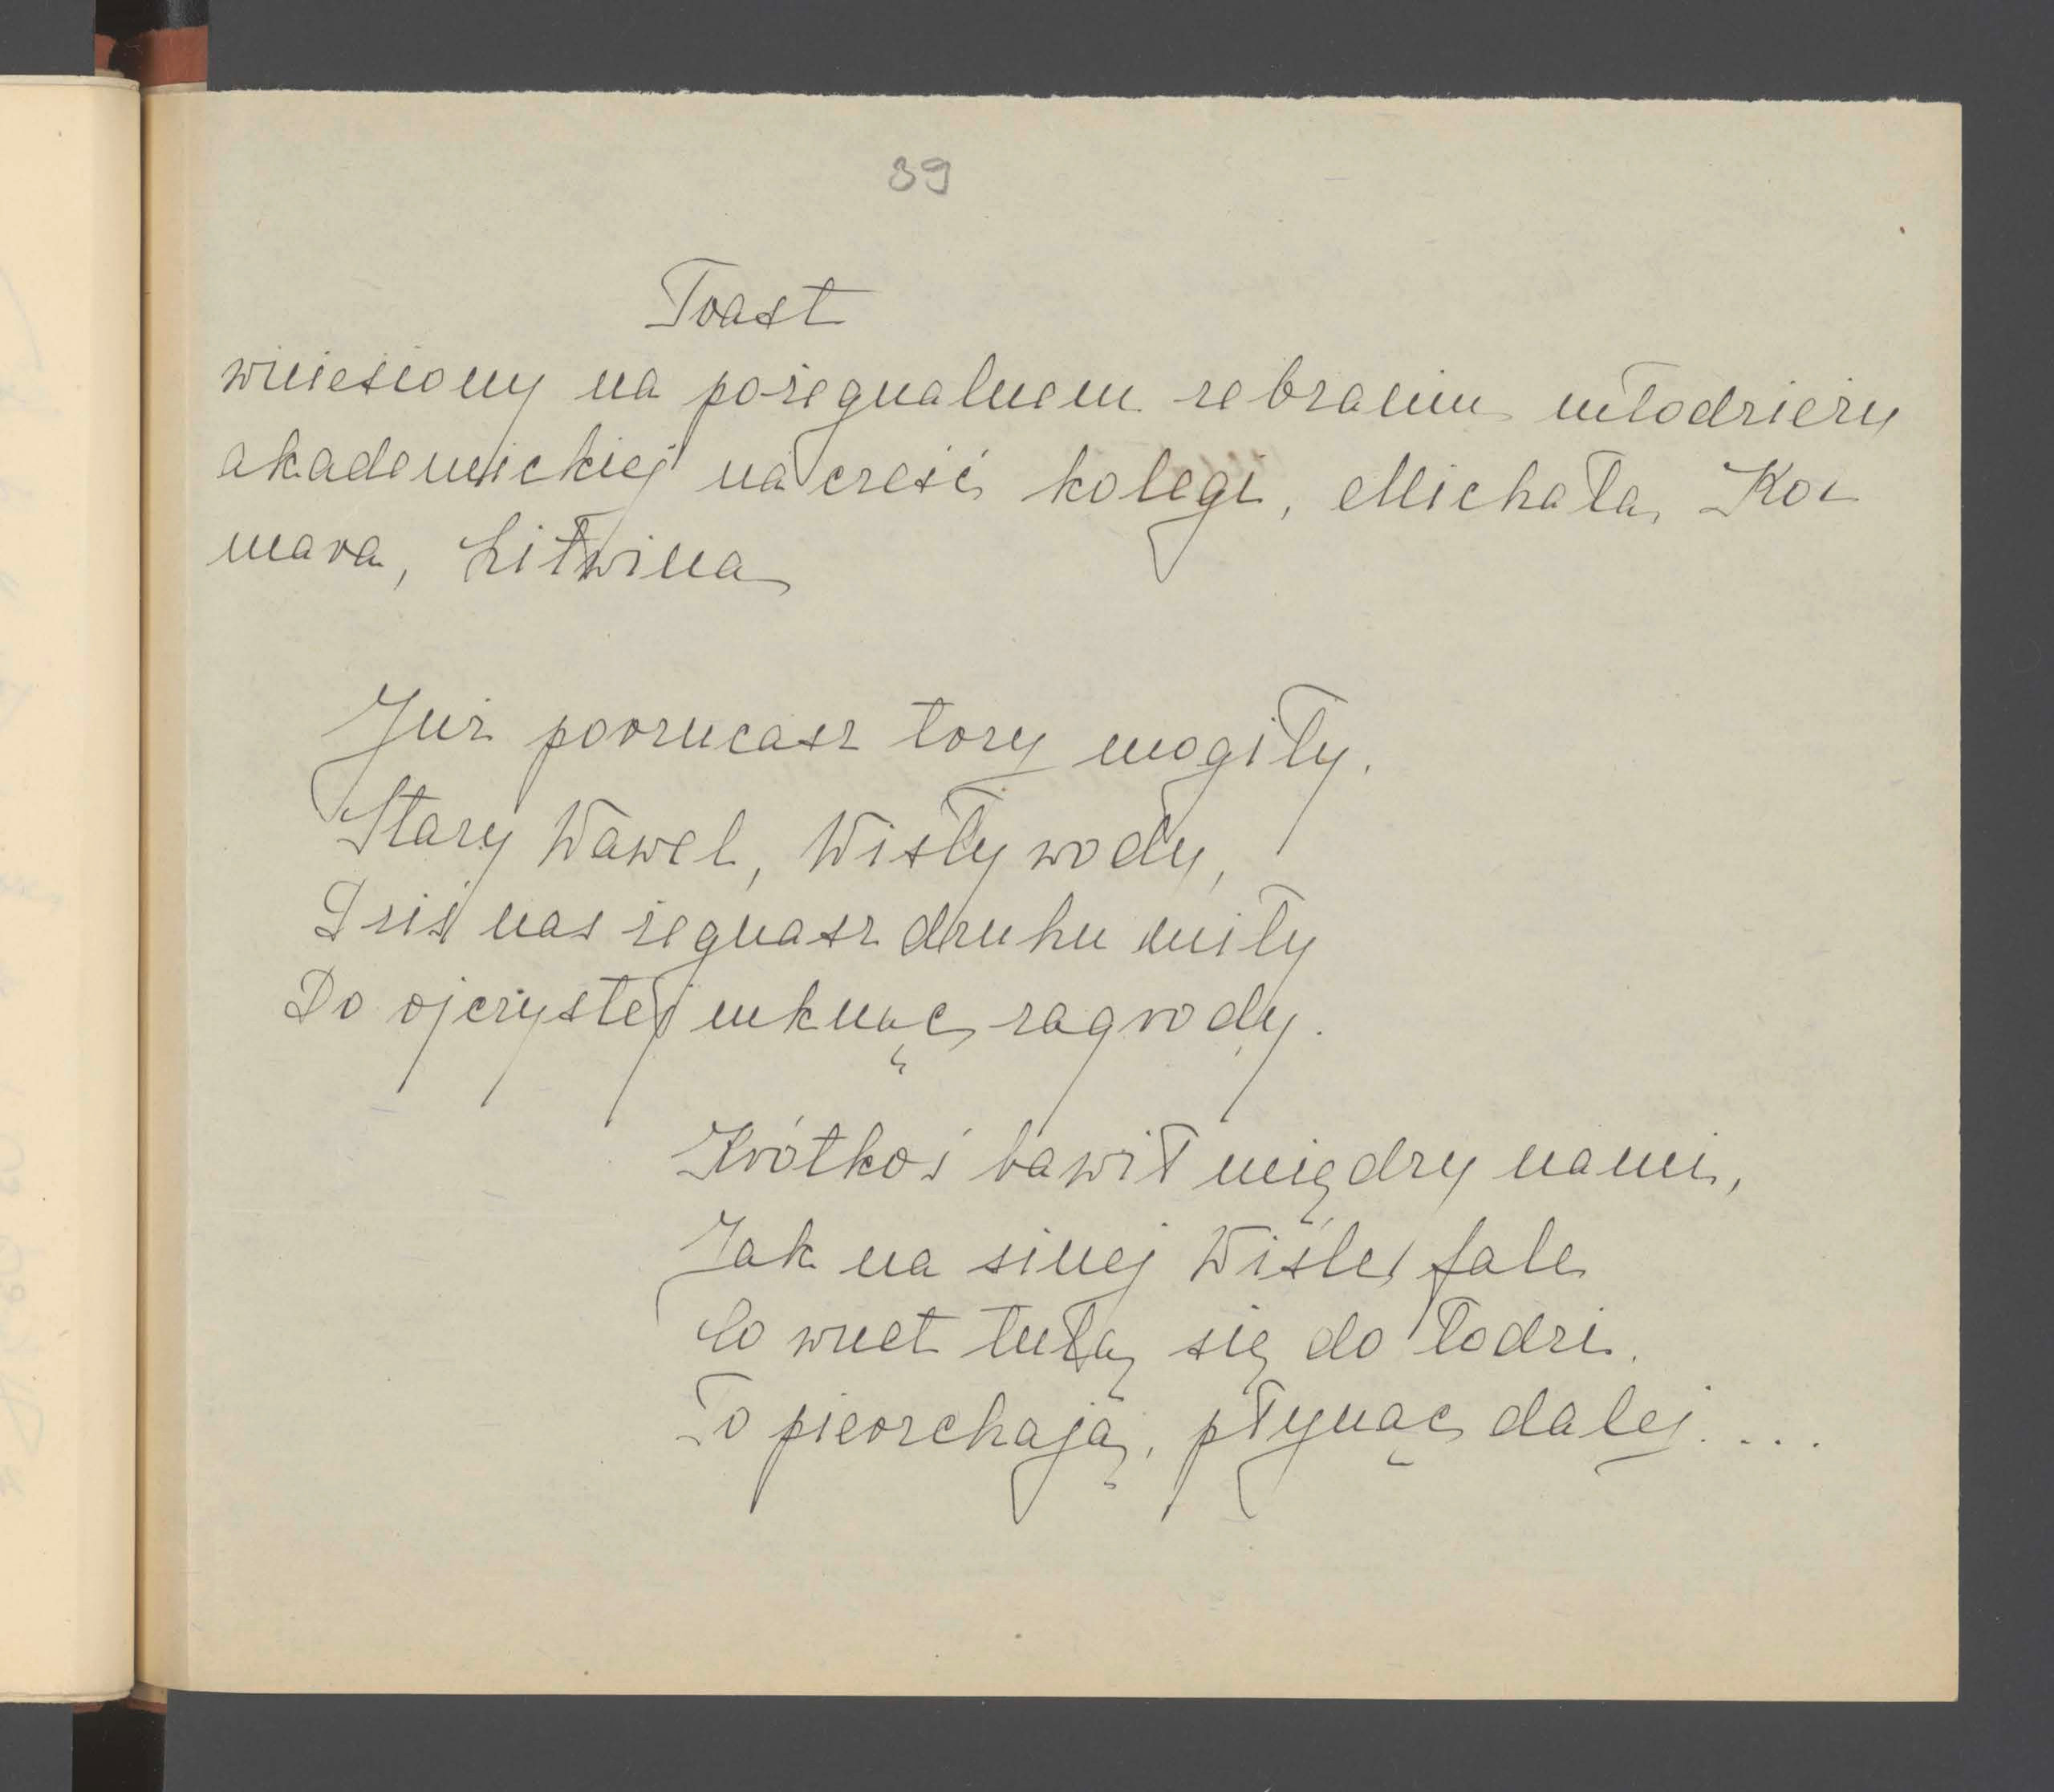 39
Toast
wzniesiony na pożegnalnem zebraniu młodzieży
akademickiej na cześć kolegi, Michała Ko-
mara, Litwina
Już porzucasz tory mogiły.
Stary Wawel, Wisły wody,
Dziś nas żegnasz druhu miły
Do ojczystej mknąc zagrody.
Krótkoś bawił między nami,
Jak na sinej Wiśle fale
Co wnet tulą się do łodzi.
To pierzchają, płynąc dalej....